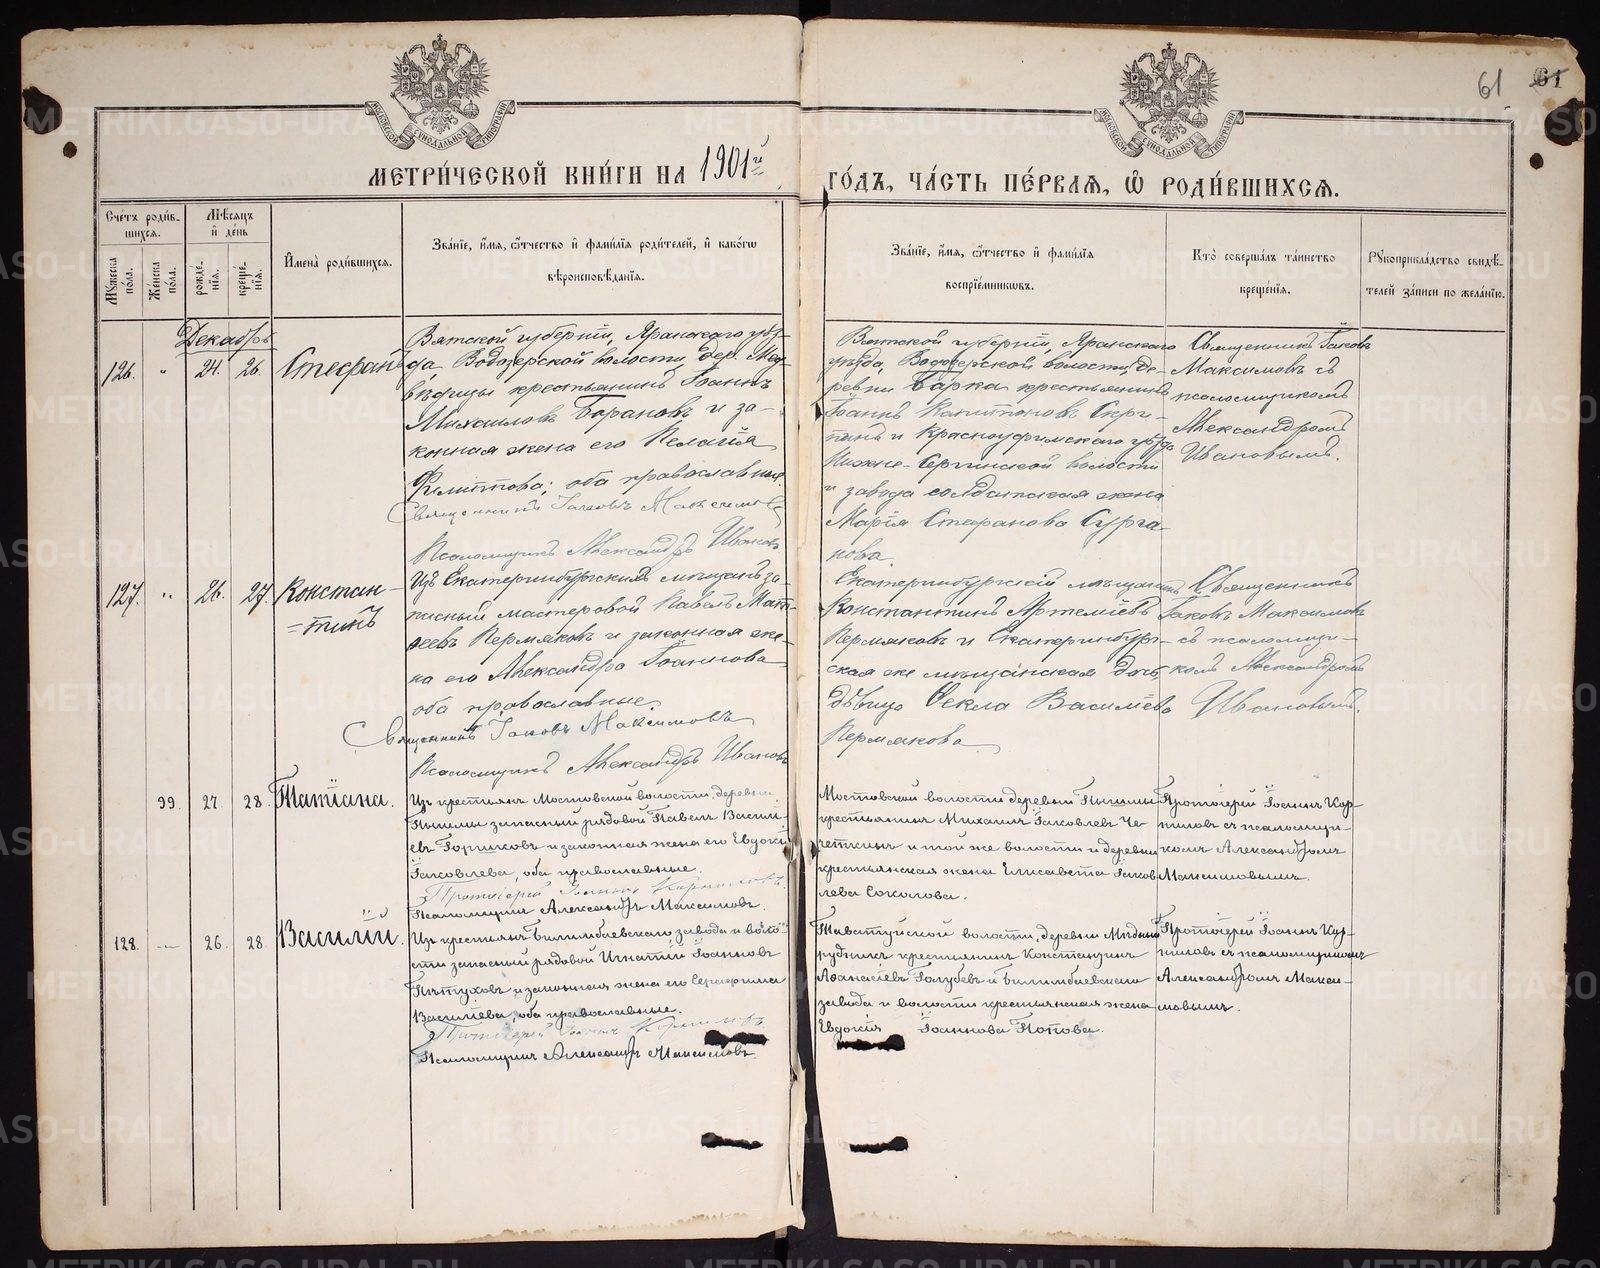 61 61
МОСКОВСКОЙ СѴНОДАЛЬНОЙ ТИПОГРАФІИ
МОСКОВСКОЙ СѴНОДАЛЬНОЙ ТИПОГРАФІИ
МЕТРИ́ЧЕСКОЙ КНИ́ГИ НА 1901й
ГО́ДЪ, ЧА́СТЬ ПЕ́РВАЯ, Ѡ҆ РОДИ́ВШИХСЯ.
Сче́тъ роди́в-
шихся.
Му́жеска по́ла.
Же́нска по́ла.
Мѣ́сяцъ и҆ де́нь
рожде́-нїя.
креще́-нїя.
И҆мена̀ роди́вшихся.
Зва́нїе, и҆́мя, ѻ҆́тчество и҆ фами́лїя роди́телей, и҆ како́гѡ
вѣроисповѣ́данїя.
Зва́нїе, и҆́мя, ѻ҆́тчество и҆ фами́лїя
воспрїе́мникѡвъ.
Кто̀ соверша́лъ та́инство
креще́нїя.
Рукоприкла́дство свидѣ́-
телей за́писи по жела́нїю.
Декабрь
126. " 24. 26. Стефанъ
Вятской губерніи, Яранскаго уѣз-
да, Водозерской волости, дер. Мед-
вѣдицы крестьянинъ Іоаннъ
Михаиловъ Барановъ и за-
конная жена его Пелагія
Филиппова; оба православные.
Священникъ Іаковъ Максимовъ
Псаломщикъ Александръ Ивановъ
Вятской губерніи, Яранскаго
уѣзда, Водозерской волости, де-
ревни Барка крестьянинъ
Іоаннъ Капитоновъ
и Красноуфимскаго уѣзда
Нижне-Сергинской волости
и завода солдатская жена
Марія Стефанова Сурга-
нова.
Священникъ Іаковъ
Максимовъ съ
псаломщикомъ
Александромъ
Ивановымъ.
127. " 26. 27. Констан-
=тинъ
Изъ Екатеринбургскихъ мѣщанъ за-
пасный мастеровой Павелъ Мат-
ѳеевъ Пермяковъ и законная же-
на его Александра Іоаннова
оба православные.
Священникъ Іаковъ Максимовъ
Псаломщикъ Александръ Ивановъ
Екатеринбургскій мѣщанинъ
Константинъ Артеміевъ
Пермяковъ и Екатеринбург-
ская же мѣщанская дочь,
дѣвица Ѳекла Василіева
Пермякова
Священникъ
Іаковъ Максимовъ
съ псаломщи-
комъ Александромъ
Ивановымъ.
99. 27. 28. Татіана.
Изъ крестьянъ Мостовской волости, деревни
Пышмы запасный рядовой Павелъ Васили-
евъ Горшковъ и законная жена его Евдокія
Іаковлева, оба православные.
Протоіерей Іоаннъ Корниловъ.
Псаломщикъ Александръ Максимовъ.
Мостовской волости деревни Пышмы
крестьянинъ Михаилъ Іаковлевъ Че-
четкинъ и той же волости и деревни
крестьянская жена Елисавета Іаков-
лева Соколова.
Протоіерей Іоаннъ Кор-
ниловъ съ псаломщи-
комъ Александромъ
Максимовымъ.
128. — 26. 28. Василій.
Изъ крестьянъ Билимбаевскаго завода и воло-
сти запасный рядовой Игнатій Іоанновъ
Пѣтуховъ и законная жена его Серафима
Василіева, оба православные.
Протоіерей Іоаннъ Корниловъ
Псаломщикъ Александръ Максимовъ.
Таватуйской волости, деревни Мѣдный
рудникъ крестьянинъ Константинъ
Аѳанасіевъ Голубевъ и Билимбаевскаго
завода и волости крестьянская жена
Евдокія Іоаннова Попова.
Протоіерей Іоаннъ Кор-
ниловъ съ псаломщикомъ
Александромъ Макси-
мовымъ.
METRIKI.GASO-URAL.RU